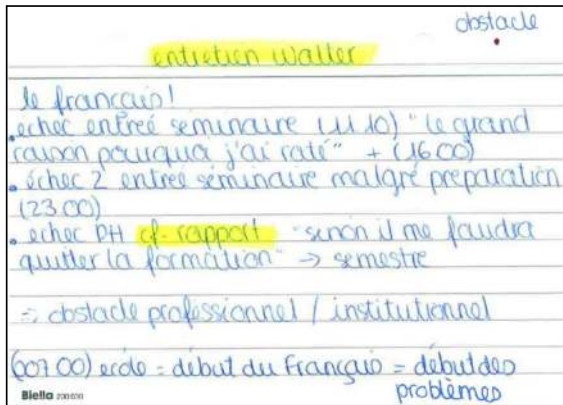 obstacle
entretien Walter
le français!
. échec entrée séminaire (11.10) "le grand
raison pourquoi j'ai raté" + (16.00)
. échec 2 entrée séminaire malgré préparation
(23.00)
. echec PH cf. rapport "sinon il me faudra
quitter la formation" → semestre
=> obstacle professionnel / institutionnel
(007.00) école = début du Français = début des
problèmes
Biella 200600